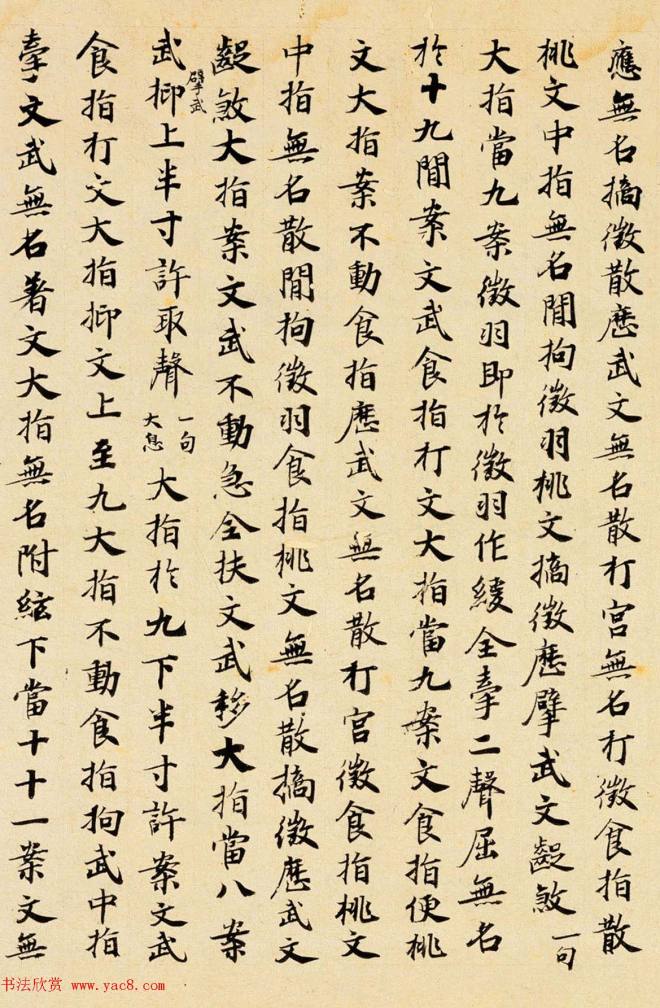 應無名擿徵散歷武文無名散打宮無名打徵食指散
桃文中指無名閒拘徵羽桃文擿徵歷擘武文齪煞一句
大指當九案徵羽即於徵羽作緩全牽二聲屈無名
於十九閒案文武食指打文大指當九案文食指便桃
文大指案不動食指歷武文無名散打宮徵食指桃文
中指無名散閒拘徵羽食指桃文無名散擿徵歷武文
齪煞大指案文武不動急全扶文武移大指當八案
武擘武抑上半寸許取聲一句大息大指於九下半寸許案文武
食指打文大指抑文上至九大指不動食指拘武中指
牽文武無名著文大指無名附絃下當十十一案文無
书法欣赏 www.yac8.com